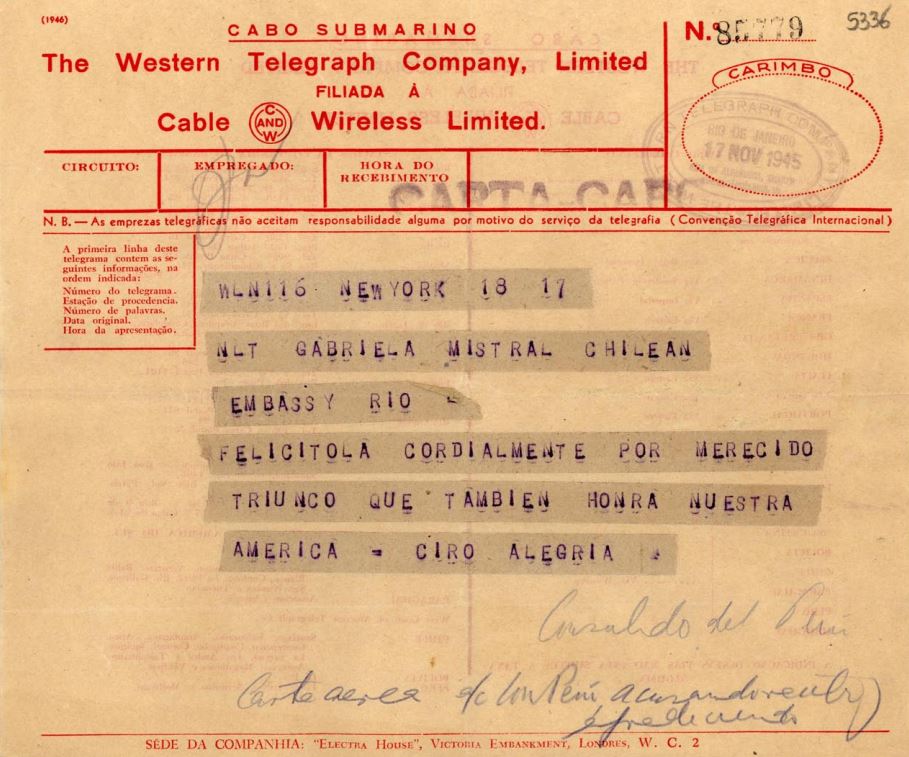 (1946)
CABO SUBMARINO
The Western Telegraph Company, Limited
FILIADA À
Cable C AND W Wireless Limited.
N.º 85779
5336
CARIMBO
RIO DE JANEIRO
17 NOV 1945
CIRCUITO:
EMPREGADO:
HORA DO
RECEBIMENTO
CARTA-CABO
N. B. — As emprezas telegráficas não aceitam responsabilidade alguma por motivo do serviço da telegrafia (Convenção Telegráfica Internacional)
A primeira linha deste
telegrama contem as se-
guintes informações, na
ordem indicada:
Número do telegrama.
Estação de procedencia.
Número de palavras.
Data original.
Hora da apresentação.
WLN116 NEWYORK 18 17
NLT GABRIELA MISTRAL CHILEAN
EMBASSY RIO =
FELICITOLA CORDIALMENTE POR MERECIDO
TRIUNCO QUE TAMBIEN HONRA NUESTRA
AMERICA = CIRO ALEGRIA +
Consulado del Perú
Carta aerea c/o Con Perú acusando recibo y
SÉDE DA COMPANHIA: "ELECTRA HOUSE", VICTORIA EMBANKMENT, LONDRES, W. C. 2